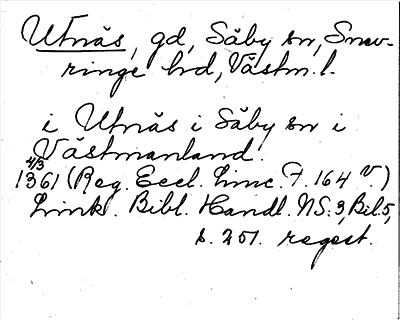 Utnäs, gd, Säby sn, Snev-
ringe hd, Västm. l.
i Utnäs i Säby sn i
Västmanland.
4/3
1361 (Reg. Eccl. Linc. F. 164 v)
Link. Bibl. Handl. NS. 3, Bil. 5,
s. 251. regest.